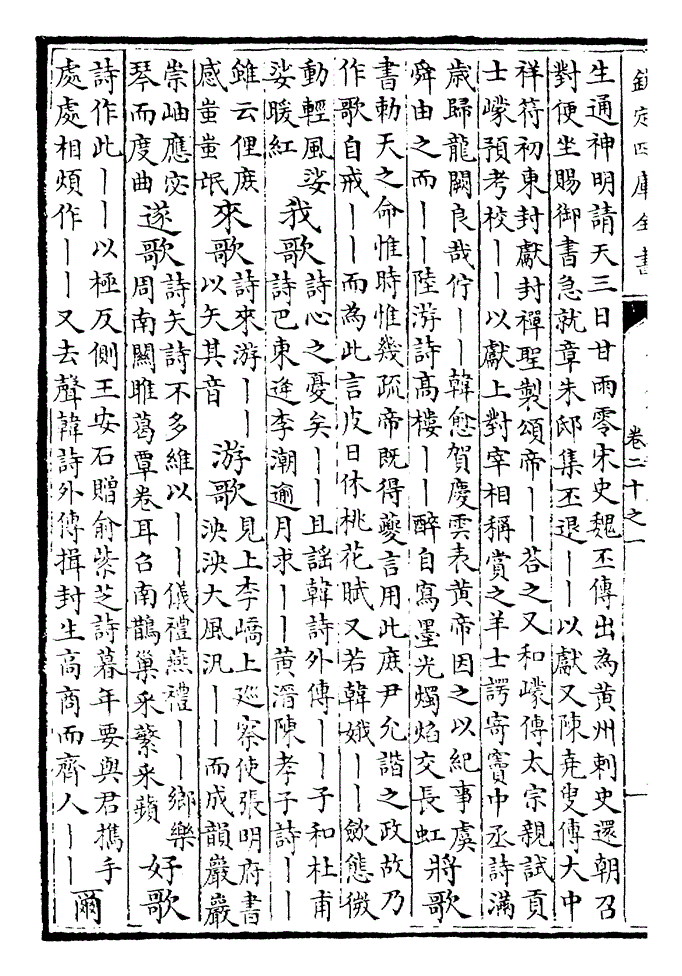 欽定四庫全書
卷二十之一
一
生通神明請天三日甘雨零宋史魏丕傳出為黄州刺史還朝召
對便坐賜御書急就章朱邸集丕退丨丨以獻又陳堯叟傳大中
祥符初東封獻封禪聖製頌帝丨丨荅之又和㠓傳太宗親試貢
士㠓預考校丨丨以獻上對宰相稱賞之羊士諤寄竇中丞詩滿
歲歸龍闕良哉佇丨丨韓愈賀慶雲表黄帝因之以紀事虞
舜由之而丨丨陸游詩高樓丨丨醉自寫墨光燭焰交長虹
將歌
書勅天之命惟時惟幾疏帝既得夔言用此庶尹允諧之政故乃
作歌自戒丨丨而為此言皮日休桃花賦又若韓娥丨丨歛態微
動輕風娑
娑暖紅
我歌
詩心之憂矣丨丨且謡韓詩外傳丨丨子和杜甫
詩巴東逢李潮逾月求丨丨黄溍陳孝子詩丨丨
雖云俚庶
感蚩蚩氓
來歌
詩來游丨丨
以矢其音
游歌
見上李嶠上廵察使張明府書
泱泱大風汎丨丨而成韻巖巖
崇岫應宓
琴而度曲
遂歌
詩矢詩不多維以丨丨儀禮燕禮丨丨鄉樂
周南關雎葛覃卷耳召南鵲巢采蘩采蘋
好歌
詩作此丨丨以極反側王安石贈俞紫芝詩暮年要與君攜手
處處相煩作丨丨又去聲韓詩外傳揖封生高商而齊人丨丨
爾